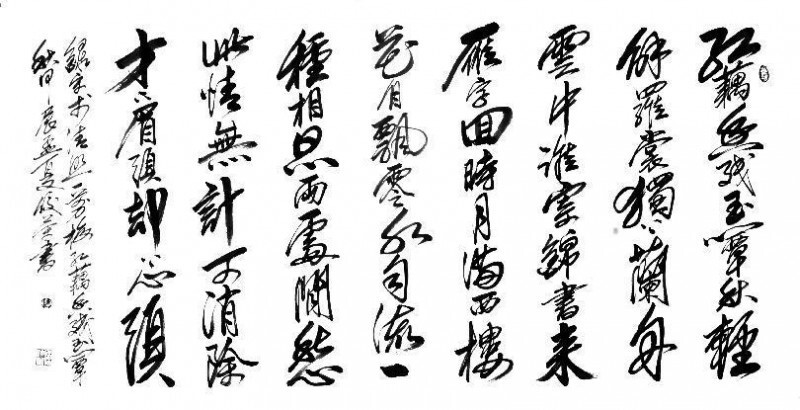 红藕香残玉簟秋輕
解羅裳獨上蘭舟
雲中誰寄錦書来
雁字回時月滿西樓
花自飄零水自流一
種相思兩處閒愁
此情無計可消除
才下眉頭却上心頭
錄宋李清照一剪梅红藕香残玉簟
秋 辰孟夏 書